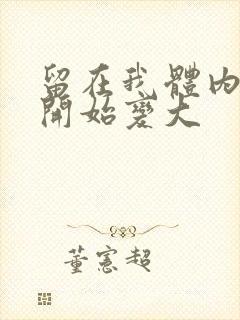 留在我體內
開始變大
董憲超